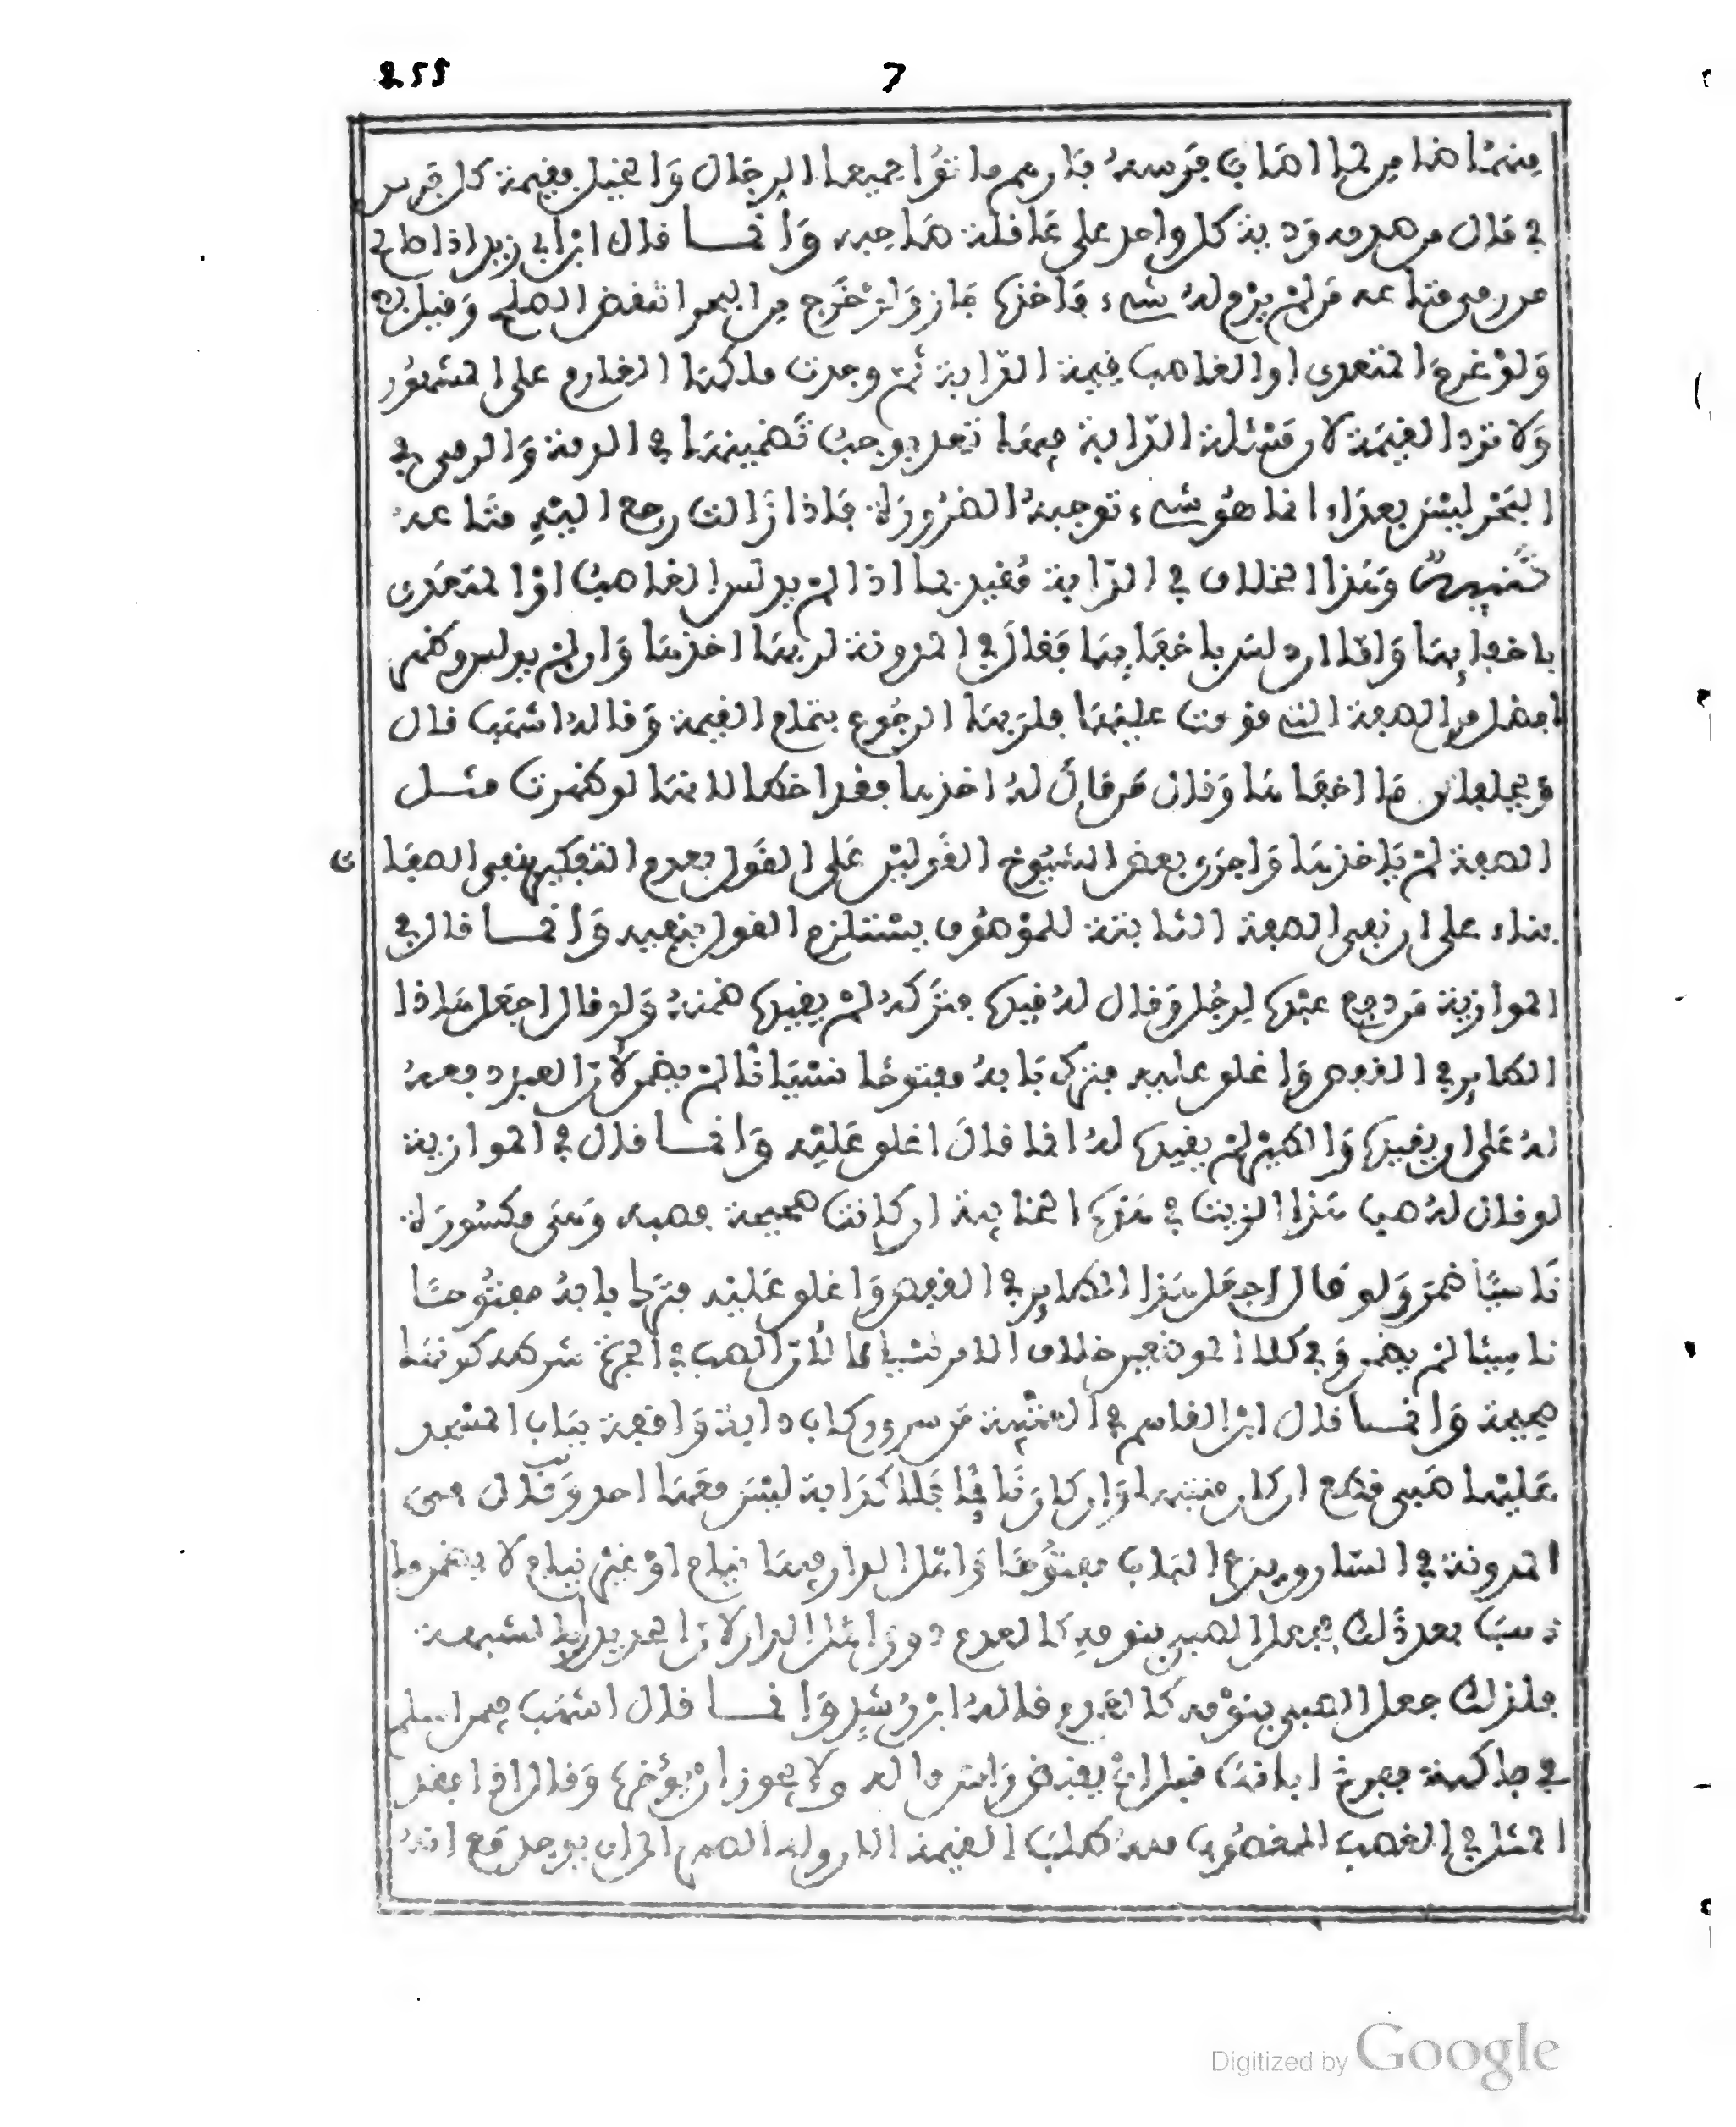 255 7
منهما ضامن لما اصاب فرسه فان هم ماتوا جميعا الرجال والخيل فقيمة كل فرس
في مال من صدمه ودية كل واحد على عاقلة صاحبه وانما قال ابن ابي زيد اذا صالح
من رمي متاعه من لم يرم له شيء فاخذها جاز وان خرج من البحر انتقض الصلح وقبل
ولو غرم المتعدي او الغاصب قيمة الدابة ثم وجدت ملكها الغارم على المشهور
ولا ترد القيمة لان مسئلة الدابة فيها تعد يوجب تضمينها في الذمة والرمي في
البحر ليس بعداء انما هو شيء توجبه الضرورة فاذا زالت رجع اليه متاعه
تنبيه وهذا الخلاف في الدابة مقيد بما اذا لم يدلس الغاصب او المتعدي
باخفائها واما ان دلس باخفائها فقال في المدونة لربها اخذها وان لم يدلس وظهر
افضل من الصفة التي قومت عليها فلربها الرجوع بتمام القيمة وقاله اشهب قال
ويحلف ما اخفاها وقال من قال له اخذها فقد اخطا لانها لو ظهرت مثل
الصفة لم ياخذها واجرى بعض الشيوخ القولين على القول بعدم التكفير بنفي الصفا ت
بناء على ان نفي الصفة الثابتة للموصوف يستلزم القول بنفيه وانما قال في
الموازية من دفع عبدا لرجل وقال له قيده فتركه لم يقيده ضمنه ولو قال اجعل هاذا
الطاير في القفص واغلق عليه فترك بابه مفتوحا نسيانا لم يضمن لان العبد دفعه
له على ان يقيده والطير لم يقيده له انما قال اغلق عليه وانما قال في الموازية
لو قال له صب هذا الزيت في هذه الخابية ان كانت صحيحة فصبه وهي مكسورة
ناسيا ضمن ولو قال اجعل هذا الطاير في القفص واغلق عليه فترك بابه مفتوحا
ناسيا لم يضمن وفي كلا الموضعين خلاف الامر نسيانا لان الصب في الجرة شرطه كونها
صحيحة وانما قال ابن القاسم في العتبية من سرق ركاب دابة واقفة بباب المسجد
عليها صبي قطع ان كان منتبها وان كان نائما فلا كدابة ليس معها احد وقال في
المدونة في السارق يدع الباب مفتوحا واهل الدار فيها نيام او غير نيام لا يضمن ما
ذهب بعد ذلك فجعل الصبي بنومه كالعدم دون اهل الدار لان الحد يدرأ بالشبهة
فلذلك جعل الصبي بنومه كالعدم قاله ابن رشد وانما قال اشهب فيمن اسلم
في فاكهة ففرغ ابانها قبل ان يقبض راس ماله ولا يجوز ان يؤخرها وقال اذا فقد
المثل في الغصب المغصوب منه طلب القيمة الان وله الصبر الى ان يوجد مع انه